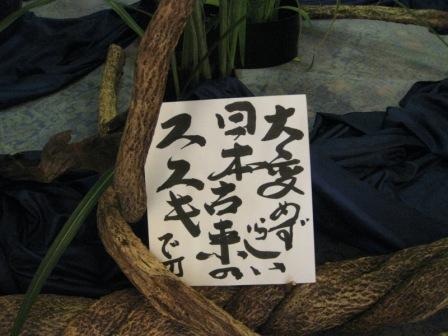 大変めずらしい
日本古来の
ススキです